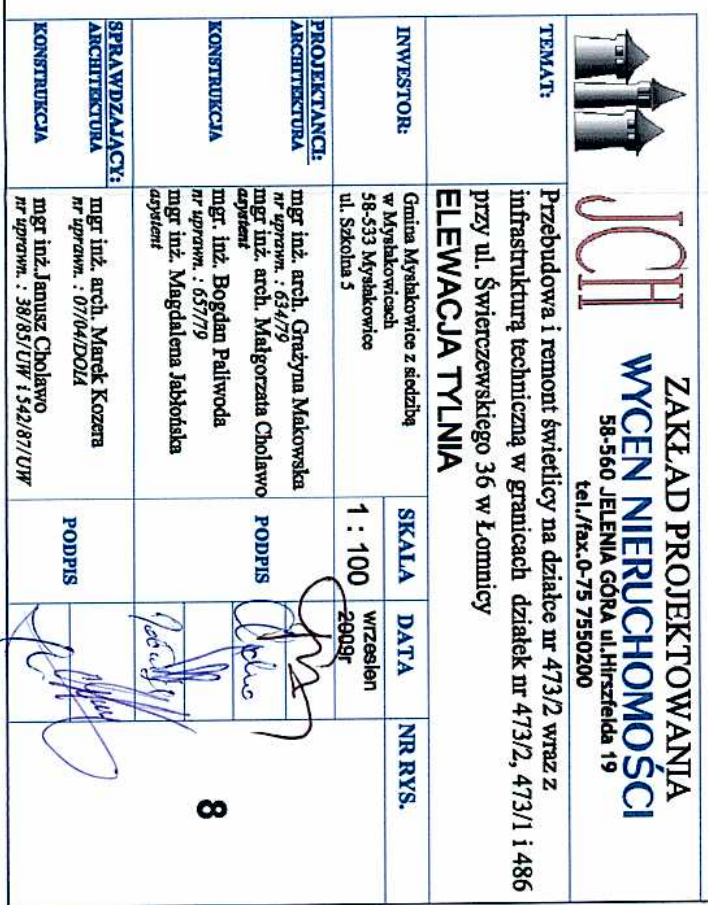 JCH
ZAKŁAD PROJEKTOWANIA
WYCEN NIERUCHOMOŚCI
58-560 JELENIA GÓRA ul.Hirszfelda 19
tel./fax.0-75 7550200
TEMAT:
Przebudowa i remont świetlicy na działce nr 473/2 wraz z
infrastrukturą techniczną w granicach działek nr 473/2, 473/1 i 486
przy ul. Świerczewskiego 36 w Łomnicy
ELEWACJA TYLNIA
INWESTOR:
Gmina Mysłakowice z siedzibą
w Mysłakowicach
58-533 Mysłakowice
ul. Szkolna 5
SKALA
1 : 100
DATA
wrzesien
2009r
NR RYS.
8
PROJEKTANCI:
ARCHITEKTURA
mgr inż. arch. Grażyna Makowska
nr uprawn. : 634/79
mgr inż. arch. Małgorzata Cholawo
asystent
KONSTRUKCJA
mgr. inż. Bogdan Paliwoda
nr uprawn. : 657/79
mgr inż. Magdalena Jabłońska
asystent
PODPIS
SPRAWDZAJĄCY:
ARCHITEKTURA
mgr inż. arch. Marek Kozera
nr uprawn. : 07/04/DOIA
KONSTRUKCJA
mgr inż.Janusz Cholawo
nr uprawn. : 38/85/UW i 542/87/UW
PODPIS